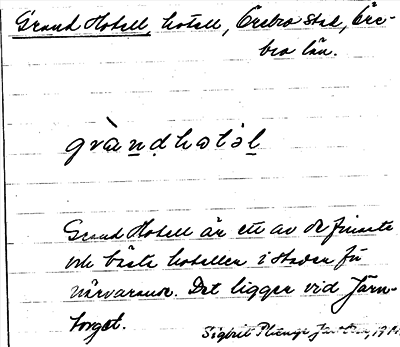 Grand Hotell, hotell, Örebro stad, Öre-
bro län.
gràn̲ḍhətàl̲
Grand Hotell är ett av de finaste
och bästa hotellen i staden för
närvarande. Det ligger vid Järn-
torget.
Sigbrit Plænge